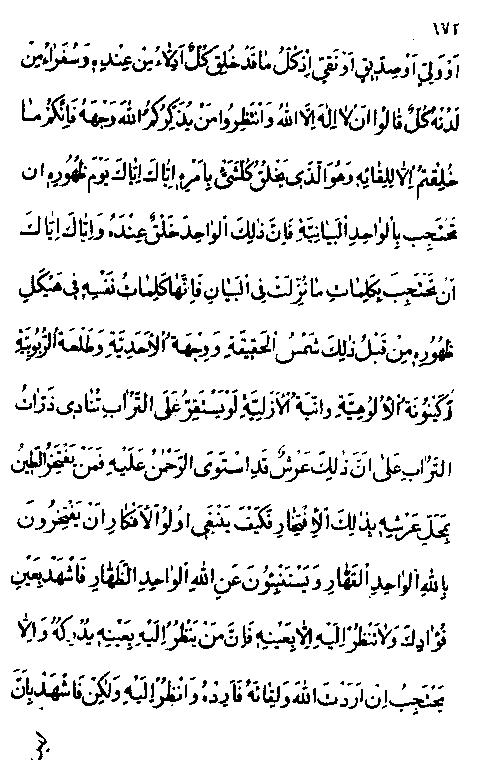 ١٧٢
اَوْ وَلِیٍّ اَوْ صِدِّیقٍ اَوْ نَقِیٍّ اِذْ كُلُّ مَا قَدْ خُلِقَ كُلٌّ اَدِلَّاءُ مِنْ عِنْدِهِ وَ سُفَرَاءُ مِنْ
لَدُنْهُ كُلٌّ قَالُوا اَنْ لَا اِلٰهَ اِلَّا اللهُ وَ انْتَظِرُوا مَنْ یُذَكِّرُكُمُ اللهُ وَجْهَهُ فَاِنَّكُمْ مَا
خُلِقْتُمْ اِلَّا لِلِقَائِهِ وَ هُوَ الَّذِی یَخْلُقُ كُلَّشَیْءٍ بِاَمْرِهِ اِیَّاكَ اِیَّاكَ یَوْمَ ظُهُورِهِ اَنْ
تَحْتَجِبَ بِالْوَاحِدِ الْبَیَانِیَّةِ فَاِنَّ ذٰلِكَ الْوَاحِدَ خَلْقٌ عِنْدَهُ وَ اِیَّاكَ اِیَّاكَ
اَنْ تَحْتَجِبَ بِكَلِمَاتِ مَا نُزِّلَتْ فِی الْبَیَانِ فَاِنَّهَا كَلِمَاتُ نَفْسِهِ فِی هَیْكَلِ
ظُهُورِهِ مِنْ قَبْلُ ذٰلِكَ شَمْسُ الْحَقِیقَةِ وَ وِجْهَةُ الْاَحَدِیَّةِ وَ طَلْعَةُ الرُّبُوبِیَّةِ
وَ كَیْنُونَةُ الْاُلُوهِیَّةِ وَ اِنِّیَّةُ الْاَزَلِیَّةِ لَوْ یَسْتَقِرُّ عَلَی التُّرَابِ تُنَادِی ذَرَّاتُ
التُّرَابِ عَلَی اَنَّ ذٰلِكَ عَرْشٌ قَدِ اسْتَوَی الرَّحْمٰنُ عَلَیْهِ فَمَنْ یَفْتَخِرُ الطِّینُ
بِمَحَلِّ عَرْشِهِ بِذٰلِكَ الْاِفْتِخَارِ فَكَیْفَ یَنْبَغِی اُولُو الْاَفْكَارِ اَنْ یَفْتَخِرُونَ
بِاللهِ الْوَاحِدِ الْقَهَّارِ وَ یَسْتَنْبِئُونَ عَنِ اللهِ الْوَاحِدِ الظَّهَّارِ فَاشْهَدْ بِعَیْنِ
فُؤَادِكَ وَ لَا تَنْظُرْ اِلَیْهِ اِلَّا بِعَیْنِهِ فَاِنَّ مَنْ یَنْظُرُ اِلَیْهِ بِعَیْنِهِ یُدْرِكُهُ وَ اِلَّا
یَحْتَجِبُ اِنْ اَرَدْتَ اللهَ وَ لِقَائَهُ فَاَرِدْهُ وَ انْظُرْ اِلَیْهِ وَ لٰكِنْ فَاشْهَدْ بِاَنَّ